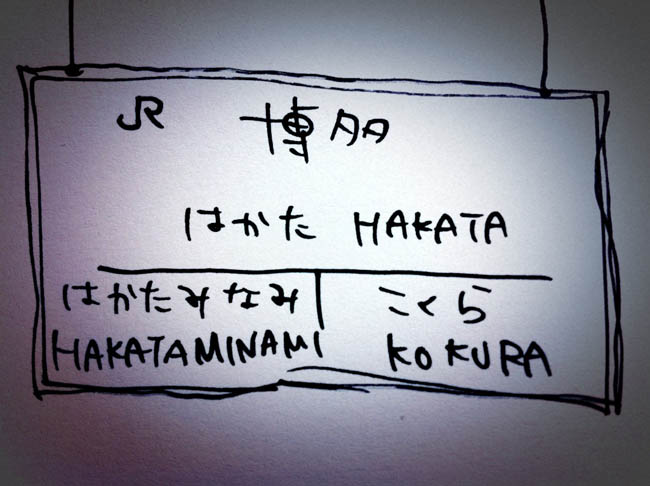 JR 博多
はかた HAKATA
はかたみなみ こくら
HAKATAMINAMI KOKURA